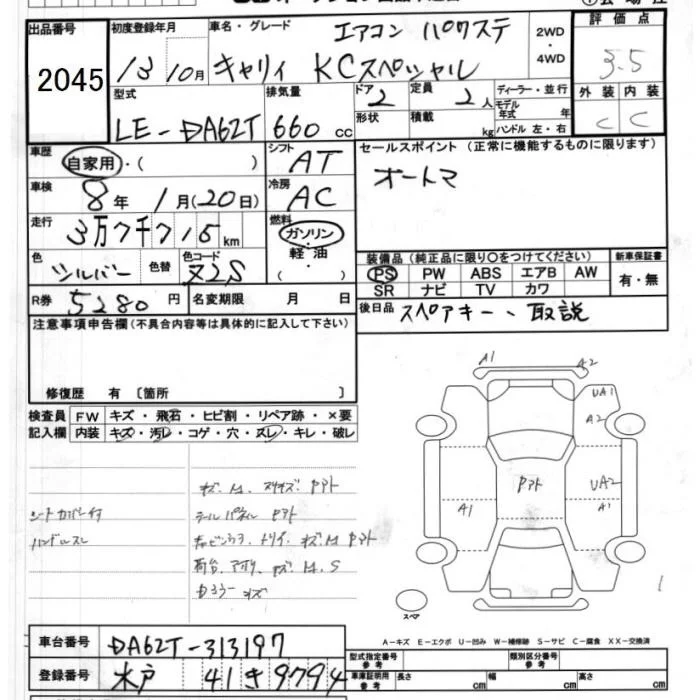 出品番号
2045
初度登録年月
13 10月
車名・グレード
エアコン パワステ
キャリィ KCスペシャル
2WD
・
4WD
評価点
3.5
外装 内装
C C
型式
LE-DA62T
排気量
660 cc
ドア 2
形状
定員 2人
積載 kg
ディーラー・並行
モデル年式 年
ハンドル 左・右
車歴
自家用・( )
シフト AT
セールスポイント (正常に機能するものに限ります)
オートマ
車検
8年 1月(20日)
冷房 AC
走行
3万7千715km
燃料
ガソリン・軽油
色
シルバー
色替
色コード
Z2S
装備品(純正品に限り○をつけてください)
PS PW ABS エアB AW
SR ナビ TV カワ
新車保証書
有・無
R券 5280円
名変期限 月 日
後日品 スペアキー、取説
注意事項申告欄(不具合内容等は具体的に記入して下さい)
修復歴 有 〔箇所 〕
検査員記入欄
FW キズ・飛石・ヒビ割・リペア跡・×要
内装 キズ・汚レ・コゲ・穴・スレ・キレ・破レ
シートカバー付
ハンドルスレ
テールパネル Pアト
A1 A2
UA1
A2
Pアト
UA2
A1
A1
スペア
A-キズ E-エクボ U-凹み W-補修跡 S-サビ C-腐食 XX-交換済
車台番号 DA62T-313197
登録番号 水戸 41 き 9794
型式指定番号 参考
類別区分番号 参考
車庫証明用参考 長さ cm 幅 cm 高さ cm